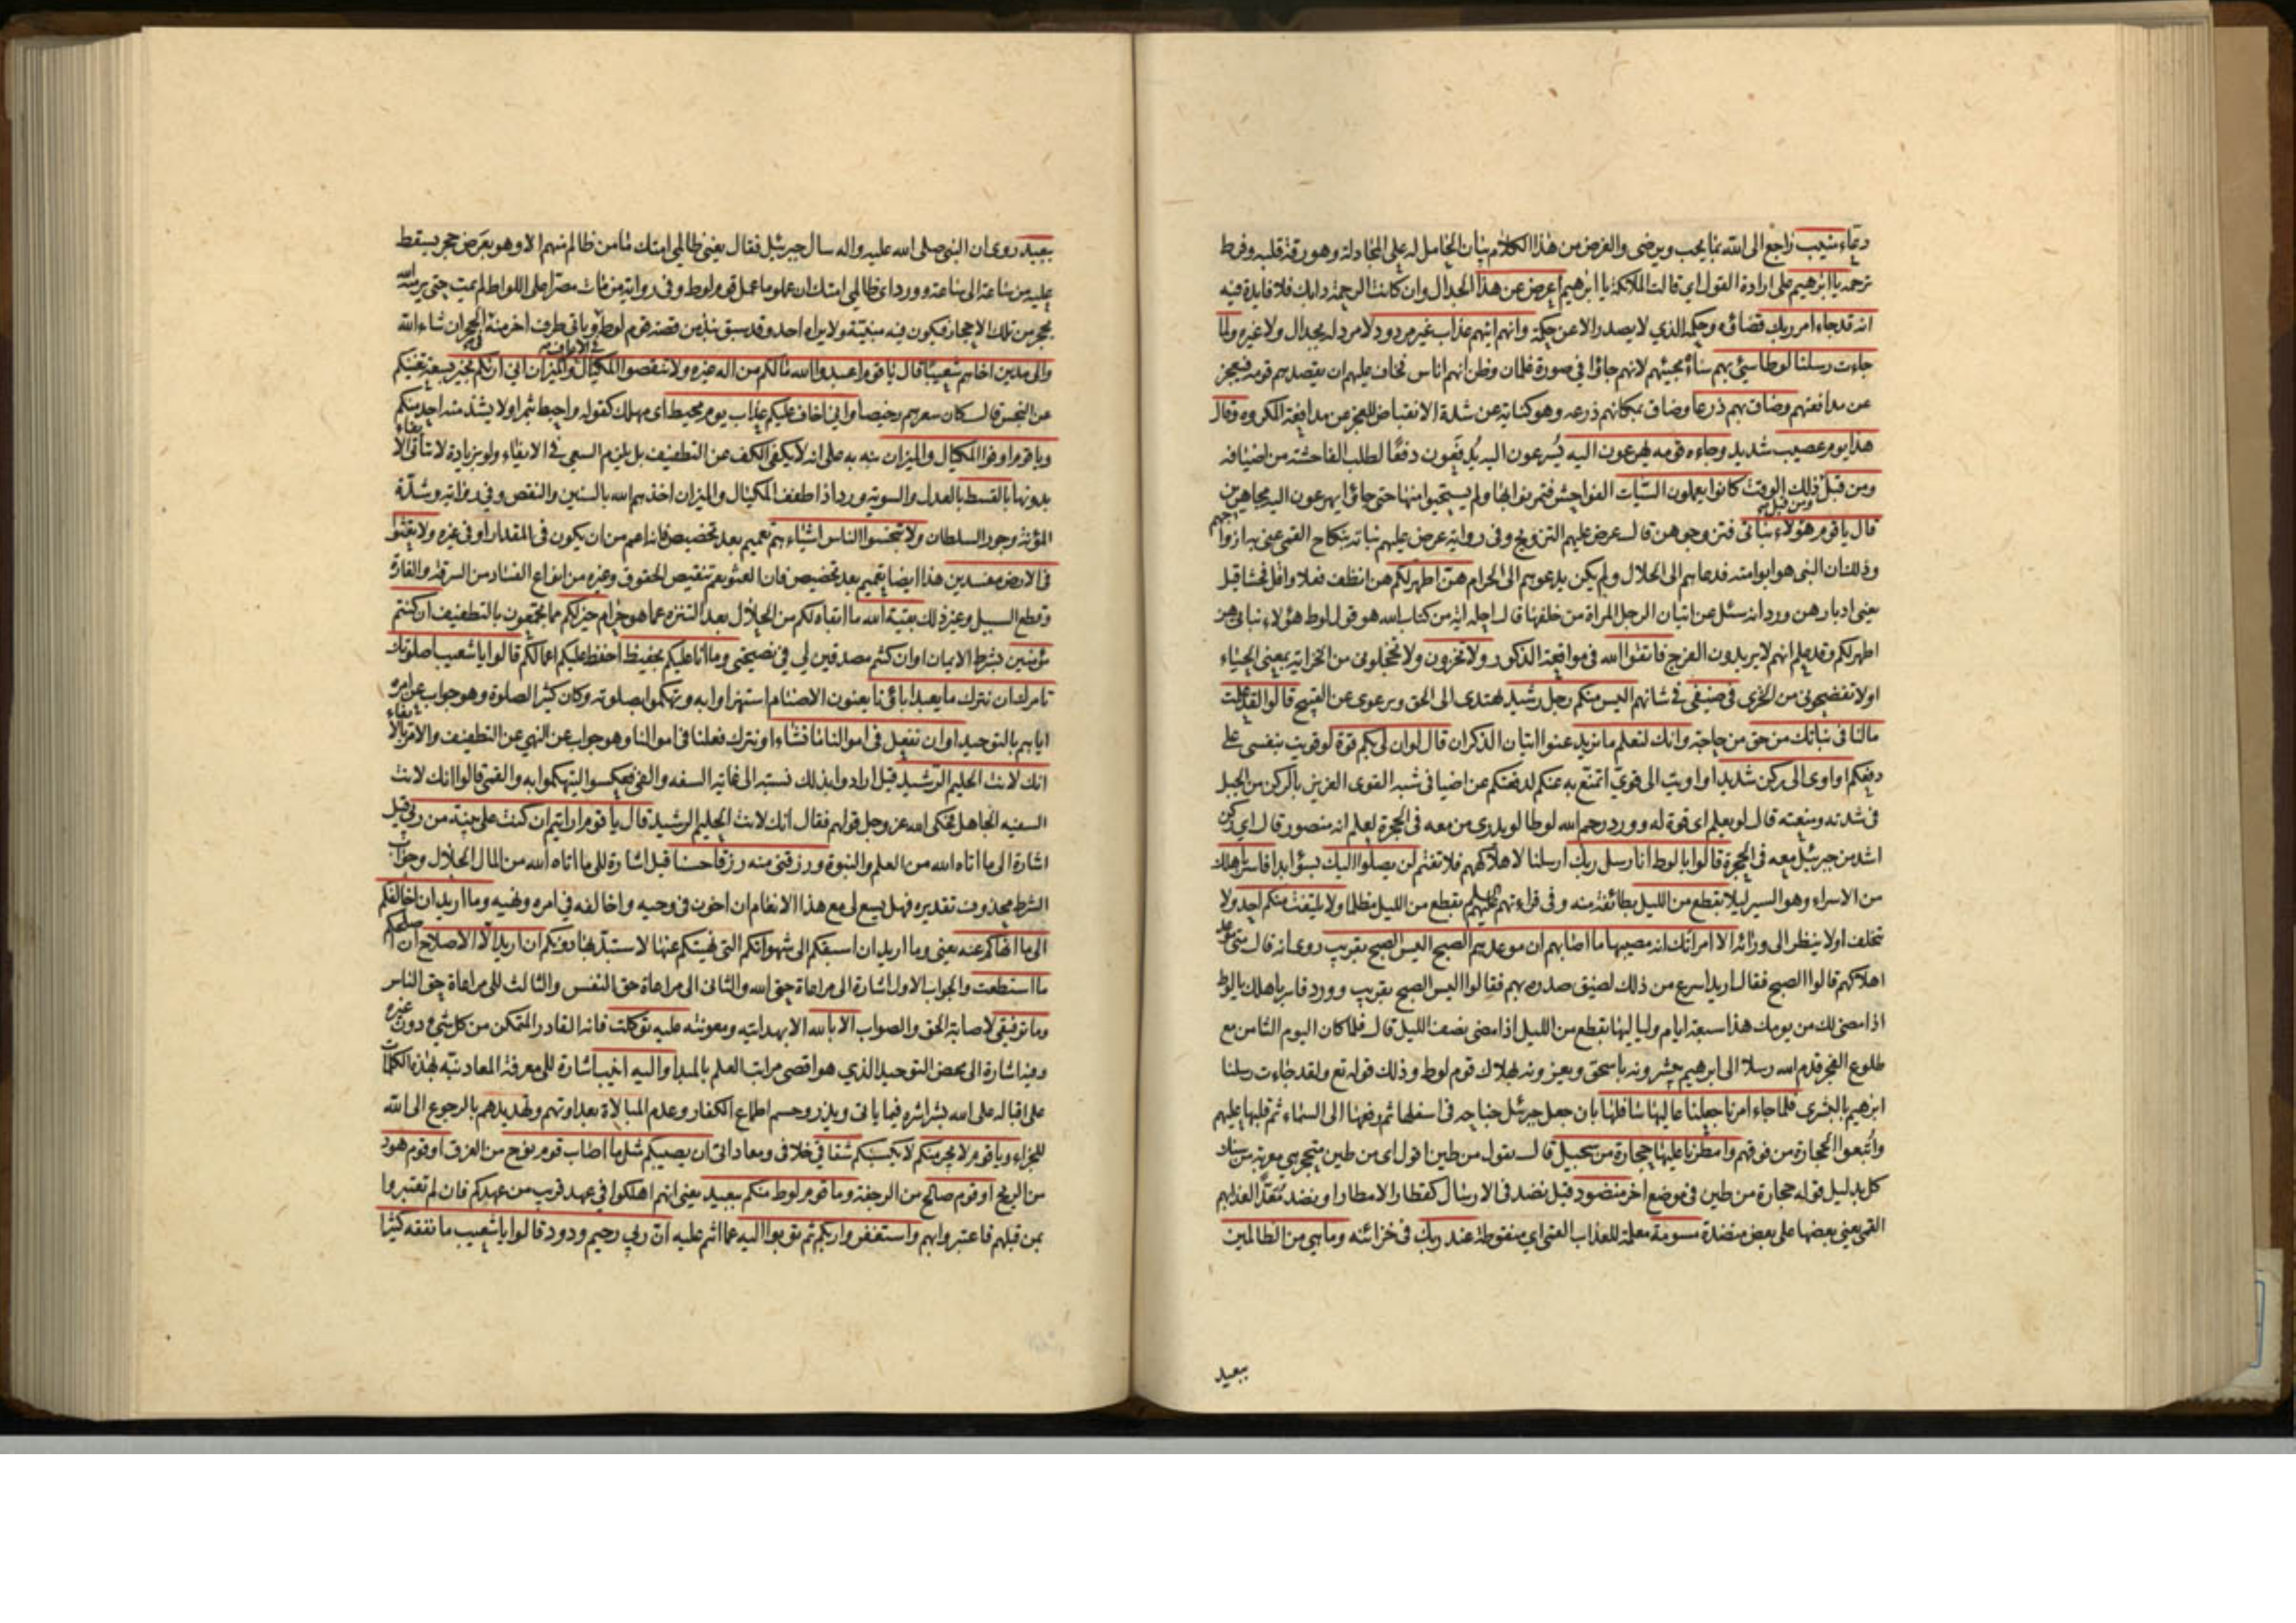 دعاء منيب راجع الى الله بما يحب ويرضى والغرض من هذا الكلام بيان الحامل له على المجادلة وهو رقة قلبه وفرط
ترحمه يا ابرهيم على ارادة القول اى قالت الملائكة يا ابرهيم اعرض عن هذا الجدال وان كانت الرحمة دابك فلا فايدة فيه
انه قد جاء امر ربك قضاؤه وحكمه الذي لا يصدر الا عن حكمة وانهم اتيهم عذاب غير مردود لا مرد له بجدال ولا غيره ولما
جاءت رسلنا لوطا سيئ بهم ساءه مجيئهم لانهم جاؤا في صورة غلمان وظن انهم اناس فخاف عليهم ان يقصدهم قومه فيعجز
عن مدافعتهم وضاق بهم ذرعا وضاق بمكانهم ذرعه وهو كناية عن شدة الانقباض للعجز عن مدافعة المكروه وقال
هذا يوم عصيب شديد وجاءه قومه يهرعون اليه يسرعون اليه يدفعون دفعا لطلب الفاحشة من اضيافه
ومن قبل ومن قبل ذلك الوقت كانوا يعملون السيئات الفواحش فتمرنوا بها ولم يستحيوا منها حتى جاؤا يهرعون اليه مجاهرين
قال يا قوم هؤلاء بناتى فتزوجوهن قال عرض عليهم التزويج وفى رواية عرض عليهم بناته بنكاح القمى عنى به ازواجهم
وذلك ان النبى هو ابو امته فدعاهم الى الحلال ولم يكن يدعوهم الى الحرام هن اطهر لكم هن انظف فعلا واقل فحشا قيل
يعنى ادبارهن ورد انه سئل عن اتيان الرجل المراة من خلفها قال احله اية من كتاب الله هو قول لوط هؤلاء بناتى هن
اطهر لكم وقد علم انهم لا يريدون الفرج فاتقوا الله فى مواقعة الذكور ولا تخزون ولا تخجلونى من الخزاية بمعنى الحياء
او لا تفضحونى من الخزى فى ضيفى فى شانهم اليس منكم رجل رشيد يهتدى الى الحق ويرعوى عن القبيح قالوا لقد علمت
مالنا فى بناتك من حق من حاجة وانك لتعلم ما نريد عنوا اتيان الذكران قال لو ان لى بكم قوة لو قويت بنفسى على
دفعكم او اوى الى ركن شديد او اويت الى قوي اتمنع به عنكم لدفعتكم عن اضيافى شبه القوى العزيز بالركن من الجبل
فى شدته ومنعته قال لو يعلم اى قوة له وورد رحم الله لوطا لو يدرى من معه فى الحجرة لعلم انه منصور قال اى ركن
اشد من جبرئيل معه فى الحجرة قالوا يا لوط انا رسل ربك ارسلنا لاهلاكهم فلا تغتم لن يصلوا اليك بسوء ابدا فاسر باهلك
من الاسراء وهو السير ليلا بقطع من الليل بطائفة منه وفى قراءتهم عليهم السلم بقطع من الليل مظلما ولا يلتفت منكم احد ولا
تخلف او لا ينظر الى ورائه الا امراتك انه مصيبها ما اصابهم ان موعدهم الصبح اليس الصبح بقريب روى انه قال متى موعد
اهلاكهم قالوا الصبح فقال اريد اسرع من ذلك لضيق صدره بهم فقالوا اليس الصبح بقريب وورد فاسر باهلك يا لوط
اذا مضى لك من يومك هذا سبعة ايام ولياليها بقطع من الليل اذا مضى نصف الليل قال فلما كان اليوم الثامن مع
طلوع الفجر قدم الله رسلا الى ابرهيم يبشرونه باسحق ويعزونه بهلاك قوم لوط وذلك قوله تع ولقد جاءت رسلنا
ابرهيم بالبشرى فلما جاء امرنا جعلنا عاليها سافلها بان جعل جبرئيل جناحه فى اسفلها ثم رفعها الى السماء ثم قلبها عليهم
واتبعوا الحجارة من فوقهم وامطرنا عليها حجارة من سجيل قال يقول من طين اقول اى من طين متحجر هى معربة من سنك
كل بدليل قوله حجارة من طين فى موضع اخر منضود قيل نضد فى الارسال كقطار الامطار او نضد معدا لعذابهم
القمى يعنى بعضها على بعض منضدة مسومة معلمة للعذاب القمى اى منقوطة عند ربك فى خزائنه وما هى من الظالمين
ببعيد
ببعيد روى ان النبى صلى الله عليه واله سال جبرئيل فقال يعنى ظالمى امتك ما من ظالم منهم الا وهو بعرض حجر يسقط
عليه من ساعة الى ساعة وورد اى ظالمى امتك ان عملوا ما عمل قوم لوط وفى رواية من مات مصرا على اللواط لم يمت حتى يرميه الله
بحجر من تلك الاحجار فيكون فيه منيته ولا يراه احد وقد سبق نبذ من قصة قوم لوط فى الاعراف وياتى طرف اخر منه فى الحجر ان شاء الله
والى مدين اخاهم شعيبا قال يا قوم اعبدوا الله مالكم من اله غيره ولا تنقصوا المكيال والميزان انى اريكم بخير بسعة تغنيكم
عن البخس قال كان سعرهم رخيصا وانى اخاف عليكم عذاب يوم محيط اى مهلك كقوله واحيط بثمره او لا يشذ منه احد منكم
ويا قوم اوفوا المكيال والميزان نبه به على انه لا يكفى الكف عن التطفيف بل يلزم السعى فى الايفاء ولو بزيادة لا يتاتى الايفاء
بدونها بالقسط بالعدل والسوية ورد اذا طفف المكيال والميزان اخذهم الله بالسنين والنقص وفى رواية وشدة
المؤنة وجور السلطان ولا تبخسوا الناس اشياءهم تعميم بعد تخصيص فانه اعم من ان يكون فى المقدار او فى غيره ولا تعثوا
فى الارض مفسدين هذا ايضا تعميم بعد تخصيص فان العثو يعم تنقيص الحقوق وغيره من انواع الفساد من السرقة والغارة
وقطع السبيل وغير ذلك بقية الله ما ابقاه لكم من الحلال بعد التنزه عما هو حرام خير لكم مما تجمعون بالتطفيف ان كنتم
مؤمنين بشرط الايمان او ان كنتم مصدقين لى فى نصيحتى وما انا عليكم بحفيظ احفظ عليكم اعمالكم قالوا يا شعيب اصلوتك
تامرك ان نترك ما يعبد اباؤنا يعنون الاصنام استهزاوا به وتهكموا بصلوته وكان كثير الصلوة وهو جواب عن امره
اياهم بالتوحيد او ان نفعل فى اموالنا ما نشاء او نترك فعلنا فى اموالنا وهو جواب عن النهى عن التطفيف والامر بالايفاء
انك لانت الحليم الرشيد قيل ارادوا بذلك نسبته الى غاية السفه والغى فعكسوا ليتهكموا به والقمى قالوا انك لانت
السفيه الجاهل فحكى الله عز وجل قولهم فقال انك لانت الحليم الرشيد قال يا قوم ارايتم ان كنت على بينة من ربى قيل
اشارة الى ما اتاه الله من العلم والنبوة ورزقنى منه رزقا حسنا قيل اشارة الى ما اتاه الله من المال الحلال وجواب
الشرط محذوف تقديره فهل يسع لى مع هذا الانعام ان اخون فى وحيه واخالفه فى امره ونهيه وما اريد ان اخالفكم
الى ما انهاكم عنه يعنى وما اريد ان اسبقكم الى شهواتكم التى نهيتكم عنها لاستبد بها دونكم ان اريد الا الاصلاح ان اصلحكم
ما استطعت والجواب الاول اشارة الى مراعاة حق الله والثانى الى مراعاة حق النفس والثالث الى مراعاة حق الناس
وما توفيقى لاصابة الحق والصواب الا بالله الا بهدايته ومعونته عليه توكلت فانه القادر المتمكن من كل شىء دون غيره
وفيه اشارة الى محض التوحيد الذي هو اقصى مراتب العلم بالمبدا واليه انيب اشارة الى معرفة المعاد نبه بهذه الكلمات
على اقباله على الله بشراشره فيما ياتى ويذر وحسم اطماع الكفار وعدم المبالاة بعداوتهم وتهديدهم بالرجوع الى الله
للجزاء ويا قوم لا يجرمنكم لا يكسبنكم شقاقى خلافى ومعاداتى ان يصيبكم مثل ما اصاب قوم نوح من الغرق او قوم هود
من الريح او قوم صالح من الرجفة وما قوم لوط منكم ببعيد يعنى انهم اهلكوا فى عهد قريب من عهدكم فان لم تعتبروا
بمن قبلهم فاعتبروا بهم واستغفروا ربكم ثم توبوا اليه عما انتم عليه ان ربى رحيم ودود قالوا يا شعيب ما نفقه كثيرا